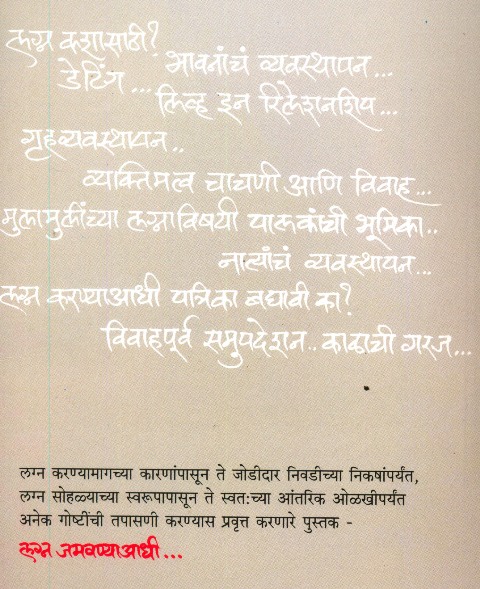 लग्न कशासाठी?
भावनांचं व्यवस्थापन...
डेटिंग...
लिव्ह इन रिलेशनशिप...
गृहव्यवस्थापन..
व्यक्तिमत्व चाचणी आणि विवाह...
मुलामुलींच्या लग्नाविषयी पालकांची भूमिका..
नात्यांचं व्यवस्थापन...
लग्न करण्याआधी पत्रिका बघावी का?
विवाहपूर्व समुपदेशन.. काळाची गरज...
लग्न करण्यामागच्या कारणांपासून ते जोडीदार निवडीच्या निकषांपर्यंत,
लग्न सोहळ्याच्या स्वरूपापासून ते स्वतःच्या आंतरिक ओळखीपर्यंत
अनेक गोष्टींची तपासणी करण्यास प्रवृत्त करणारे पुस्तक -
लग्न जमवण्याआधी...